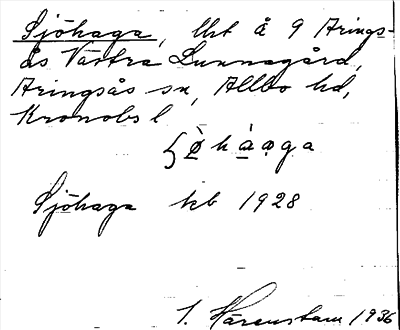 Sjöhaga, lht å 9 Arings-
ås Västra Lunnagård,
Aringsås sn, Allbo hd,
Kronobs l
Sjöhaga kb 1928
Härenstam 1936